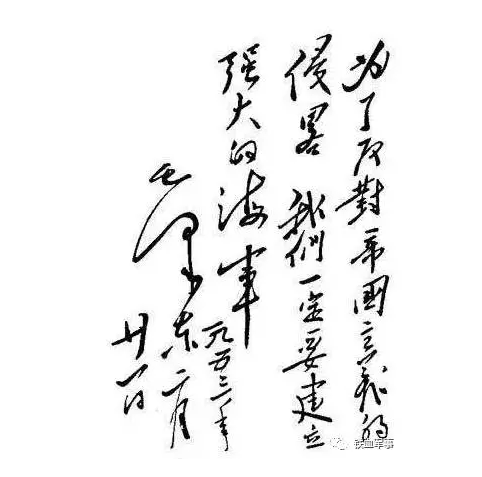 为了反對帝國主義的
侵畧 我們一定要建立
强大的海軍
一九五三年
毛泽东 二月
廿一日
铁血军事